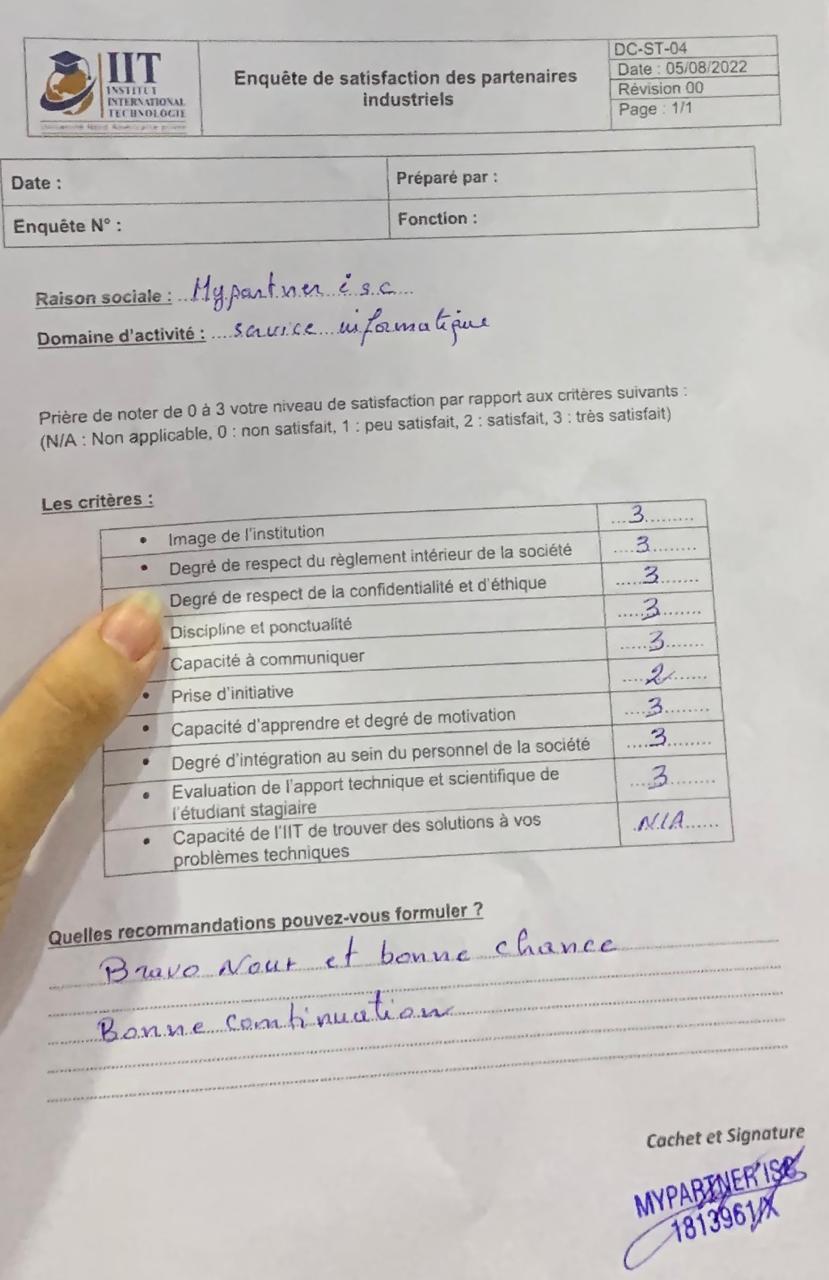 IIT
INSTITUT
INTERNATIONAL
TECHNOLOGIE
Université Nord Américaine privée
Enquête de satisfaction des partenaires
industriels
DC-ST-04
Date : 05/08/2022
Révision 00
Page : 1/1
Date :
Préparé par :
Enquête N° :
Fonction :
Raison sociale : Mypartner i s.c
Domaine d'activité : service informatique
Prière de noter de 0 à 3 votre niveau de satisfaction par rapport aux critères suivants :
(N/A : Non applicable, 0 : non satisfait, 1 : peu satisfait, 2 : satisfait, 3 : très satisfait)
Les critères :
• Image de l'institution 3
• Degré de respect du règlement intérieur de la société 3
Degré de respect de la confidentialité et d'éthique 3
Discipline et ponctualité 3
Capacité à communiquer 3
• Prise d'initiative 2
• Capacité d'apprendre et degré de motivation 3
• Degré d'intégration au sein du personnel de la société 3
• Evaluation de l'apport technique et scientifique de
l'étudiant stagiaire 3
• Capacité de l'IIT de trouver des solutions à vos
problèmes techniques N/A
Quelles recommandations pouvez-vous formuler ?
Bravo Nour et bonne chance
Bonne continuation
Cachet et Signature
MYPARTNER ISC
1813961/X